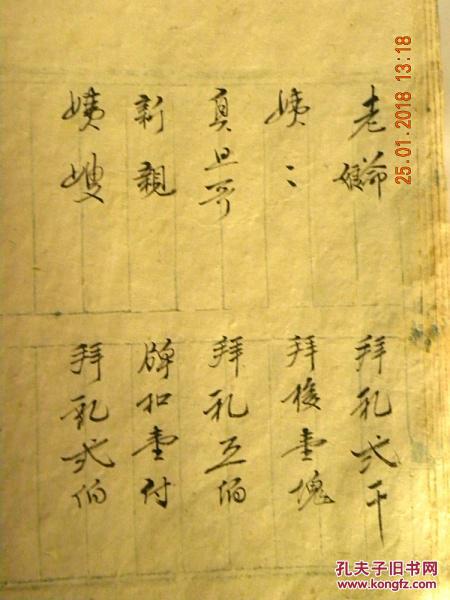 老爺娘 拜礼弍千
姨〻 拜壹塊
真旦哥 拜礼五伯
新親 牌扣壹付
姨嫂 拜礼弍伯
25.01.2018 13:18
孔夫子旧书网
www.kongfz.com